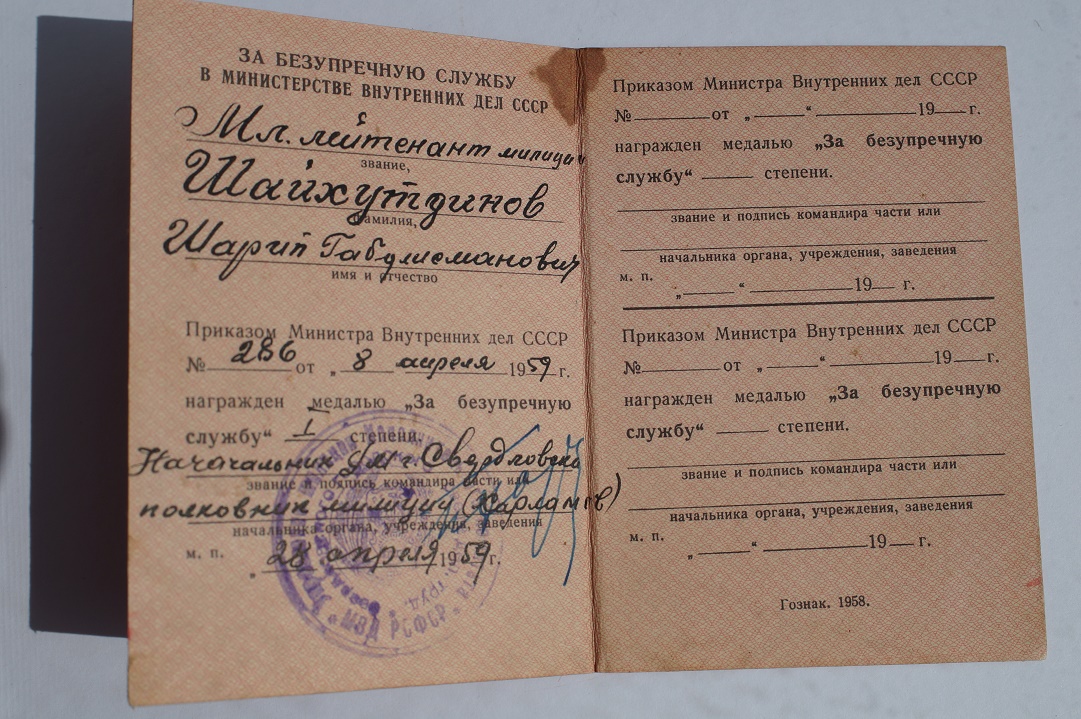 ЗА БЕЗУПРЕЧНУЮ СЛУЖБУ
В МИНИСТЕРСТВЕ ВНУТРЕННИХ ДЕЛ СССР
Мл. лейтенант милиции
звание,
Шайхутдинов
фамилия,
Шарип Габулисманович
имя и отчество
Приказом Министра Внутренних дел СССР
№ 286 от „ 8 апреля 1959 г.
награжден медалью „За безупречную
службу“ I степени.
Начальник УМ г. Свердловска
звание и подпись командира части или
полковник милиции (Харламов)
начальника органа, учреждения, заведения
м. п.
„ 28 апреля 1959 г.
МВД РСФСР
Приказом Министра Внутренних дел СССР
№ от „ “ 19 г.
награжден медалью „За безупречную
службу“ степени.
звание и подпись командира части или
начальника органа, учреждения, заведения
м. п.
„ “ 19 г.
Приказом Министра Внутренних дел СССР
№ от „ “ 19 г.
награжден медалью „За безупречную
службу“ степени.
звание и подпись командира части или
начальника органа, учреждения, заведения
м. п.
„ “ 19 г.
Гознак. 1958.